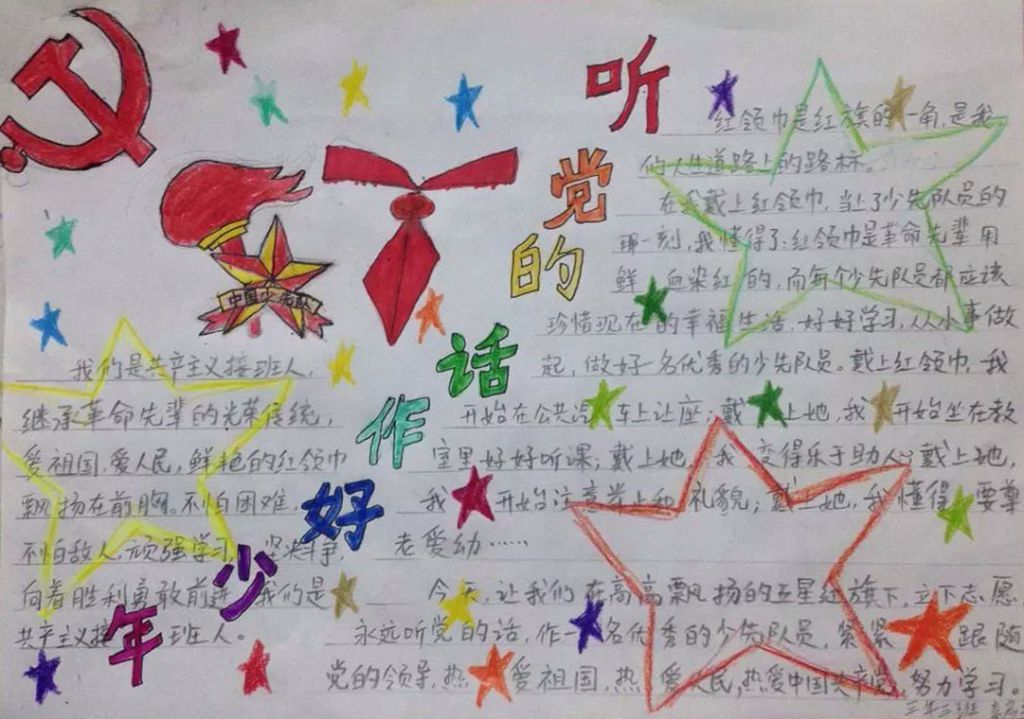 听党的话作好少年
中国少先队
我们是共产主义接班人,
继承革命先辈的光荣传统,
爱祖国,爱人民,鲜艳的红领巾
飘扬在前胸。不怕困难,
不怕敌人,顽强学习,坚决斗争,
向着胜利勇敢前进,我们是
共产主义接班人。
红领巾是红旗的一角,是我
们人生道路上的路标。
在我戴上红领巾,当了少先队员的
那一刻,我懂得了:红领巾是革命先辈用
鲜血染红的,而每个少先队员都应该
珍惜现在的幸福生活,好好学习,从小事做
起,做好一名优秀的少先队员。戴上红领巾,我
开始在公共汽车上让座;戴上她,我开始坐在教
室里好好听课;戴上她,我变得乐于助人;戴上她,
我开始注意举止和礼貌;戴上她,我懂得要尊
老爱幼……
今天,让我们在高高飘扬的五星红旗下,立下志愿
永远听党的话,作一名优秀的少先队员,紧紧跟随
党的领导,热爱祖国,热爱人民,热爱中国共产党,努力学习。
三年三班